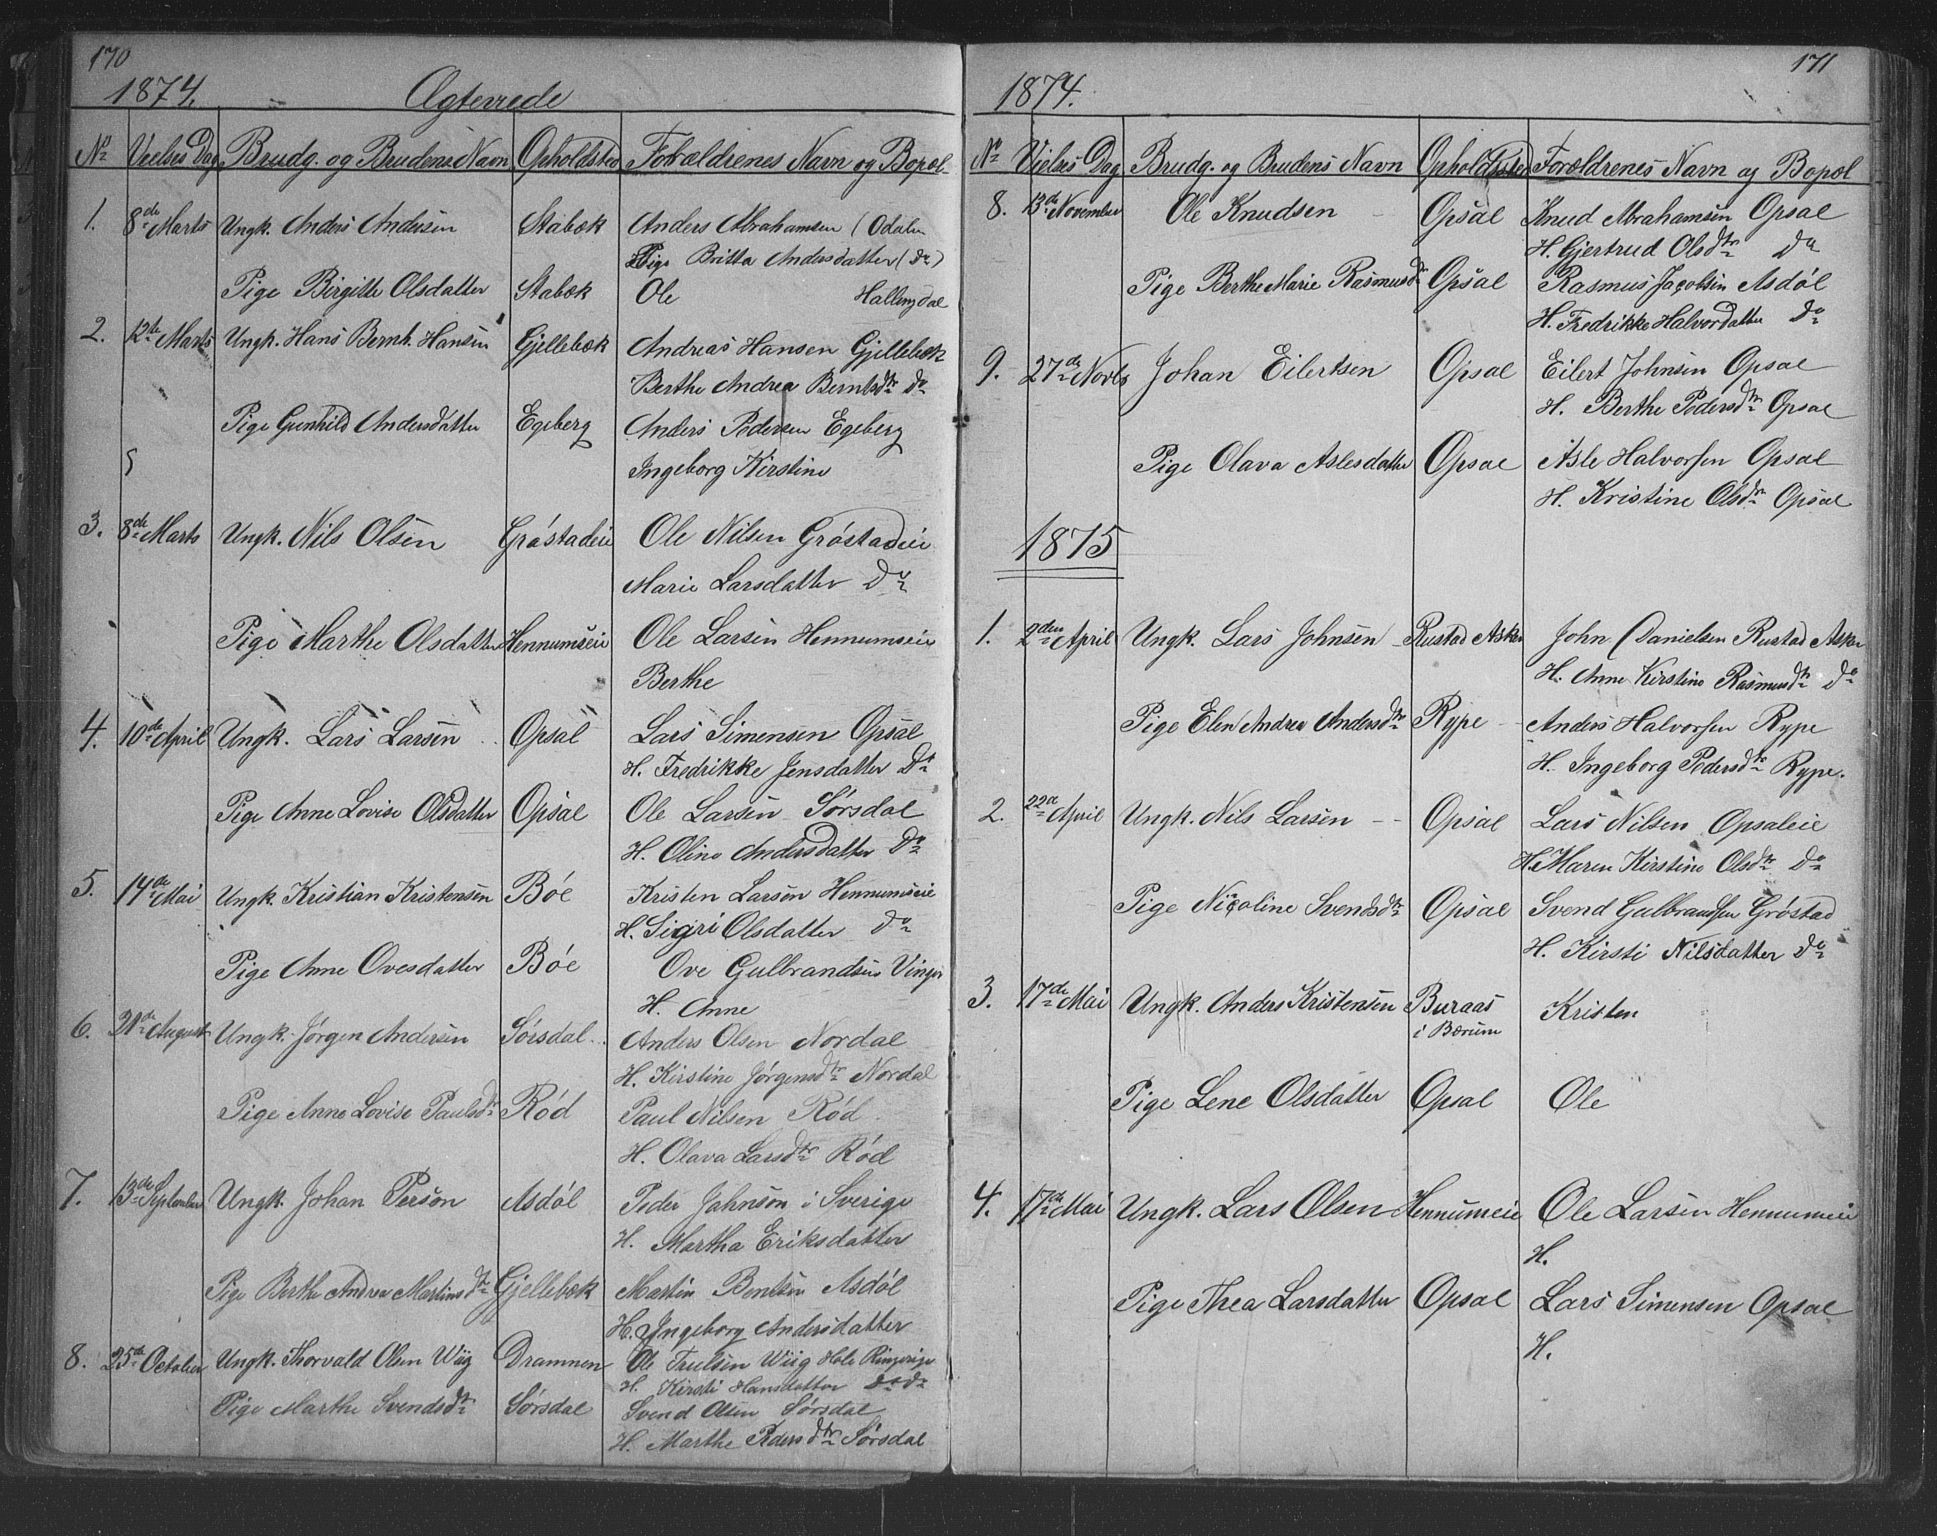 170
1874. Ægteviede
No Vielses Dag Brudg. og Brudens Navn Opholdsted Forældrenes Navn og Bopæl
1. 8de Marts Ungk. Anders Andersen Stabæk Anders Abrahamsen (Odalen
Pige Britta Andersdatter (Do)
Pige Birgitte Olsdatter Stabæk Ole Hallingdal
2. 12te Marts Ungk. Hans Bernh. Hansen Gjellebæk Andreas Hansen Gjellebæk
Berthe Andrea Berntsdtr Do
Pige Gunhild Andersdatter Egeberg Anders Pedersen Egeberg
Ingeborg Kirstine
3. 8de Marts Ungk. Nils Olsen Gröstadeie Ole Nilsen Gröstadeie
Marie Larsdatter Do
Pige Marthe Olsdatter Hennumseie Ole Larsen Hennumseie
Berthe
4. 10de April Ungk. Lars Larsen Opsal Lars Simensen Opsal
H. Fredrikke Jensdatter Do
Pige Anne Lovise Olsdatter Opsal Ole Larsen Sörsdal
H. Oline Andersdatter Do
5. 14de Mai Ungk. Kristian Kristensen Böe Kristen Larsen Hennumseie
H. Sigri Olsdatter Do
Pige Anne Ovesdatter Böe Ove Gulbrandsen
H. Anne
6. 21de August Ungk. Jörgen Andersen Sörsdal Anders Olsen Nordal
H. Kirstine Jörgensdtr Nordal
Pige Anne Lovise Paulsdtr Röd Paul Nilsen Röd
H. Olava Larsdtr Röd
7. 13de September Ungk. Johan Person Asdöl Peder Jahnson i Sverige
H. Martha Eriksdatter
Pige Berthe Andrea Martinsdtr Gjellebæk Martin Bentsen Asdöl
H. Ingeborg Andersdatter
8. 25de October Ungk. Thorvald Olsen Wiig Drammen Ole Trulsen Wiig Hole Ringerige
H. Kirsti Hansdatter Do Do
Pige Marthe Svendsdtr Sörsdal Svend Olsen Sörsdal
H. Marthe Pedersdtr Sörsdal
171
1874.
No Vielses Dag Brudg. og Brudens Navn Opholdssted Forældrenes Navn og Bopæl
8. 13de November Ole Knudsen Opsal Knud Abrahamsen Opsal
H. Gjertrud Olsdtr Do
Pige Berthe Marie Rasmusdtr Opsal Rasmus Jacobsen Asdöl
H. Fredrikke Halvordatter Do
9. 27de Novbr Johan Eilertsen Opsal Eilert Johnsen Opsal
H. Berthe Pedersdtr Opsal
Pige Olava Aslesdatter Opsal Asle Halvorsen Opsal
H. Kristine Olsdtr Opsal
1875
1. 2den April Ungk. Lars Johnsen Rustad Asker John Danielsen Rustad Asker
H. Anne Kirstine Rasmusdtr Do
Pige Elen Andrea Andersdtr Rype Anders Halvorsen Rype
H. Ingeborg Pedersdtr Rype.
2. 22de April Ungk. Nils Larsen Opsal Lars Nilsen Opsaleie
H. Maren Kirstine Olsdtr Do
Pige Nicoline Svendsdtr Opsal Svend Gulbrandsen Gröstad
H. Kirsti Nilsdatter Do
3. 17de Mai Ungk. Anders Kristensen Buraas Kristen
i Bærum
Pige Lene Olsdatter Opsal Ole
4. 17de Mai Ungk. Lars Olsen Hennumeie Ole Larsen Hennumeie
H.
Pige Thea Larsdatter Opsal Lars Simensen Opsal
H.